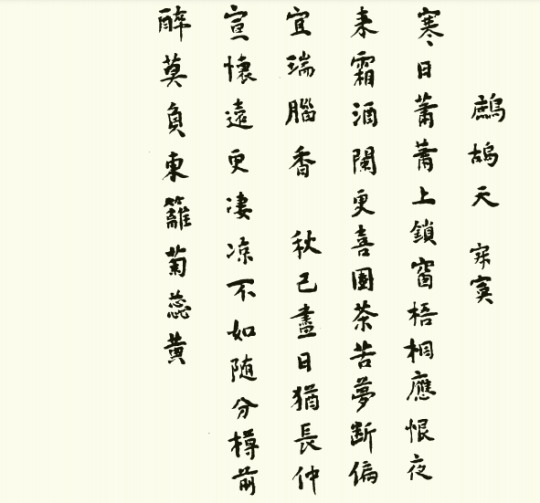 鷓鴣天 寂寞
寒日蕭蕭上鎖窗梧桐應恨夜
来霜酒闌更喜團茶苦夢斷偏
宜瑞腦香 秋已盡日猶長仲
宣懷遠更凄凉不如随分樽前
醉莫負東籬菊蕊黄